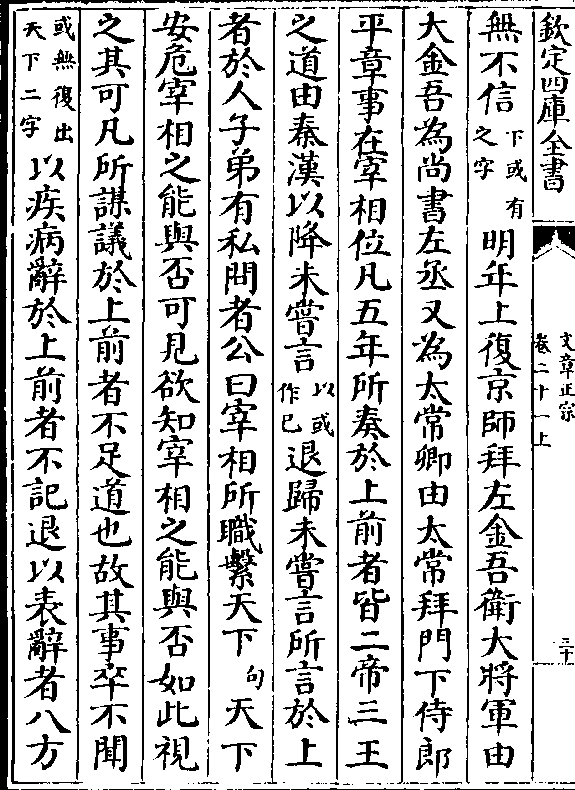 欽定四庫全書
文章正宗
卷二十一上
三十
無不信下或有之字明年上復京師拜左金吾衛大將軍由
大金吾為尚書左丞又為太常卿由太常拜門下侍郎
平章事在宰相位凡五年所奏於上前者皆二帝三王
之道由秦漢以降未嘗言以或作已退歸未嘗言所言於上
者於人子弟有私問者公曰宰相所職繫天下句天下
安危宰相之能與否可見欲知宰相之能與否如此視
之其可凡所謀議於上前者不足道也故其事卒不聞
或無復出天下二字以疾病辭於上前者不記退以表辭者八方